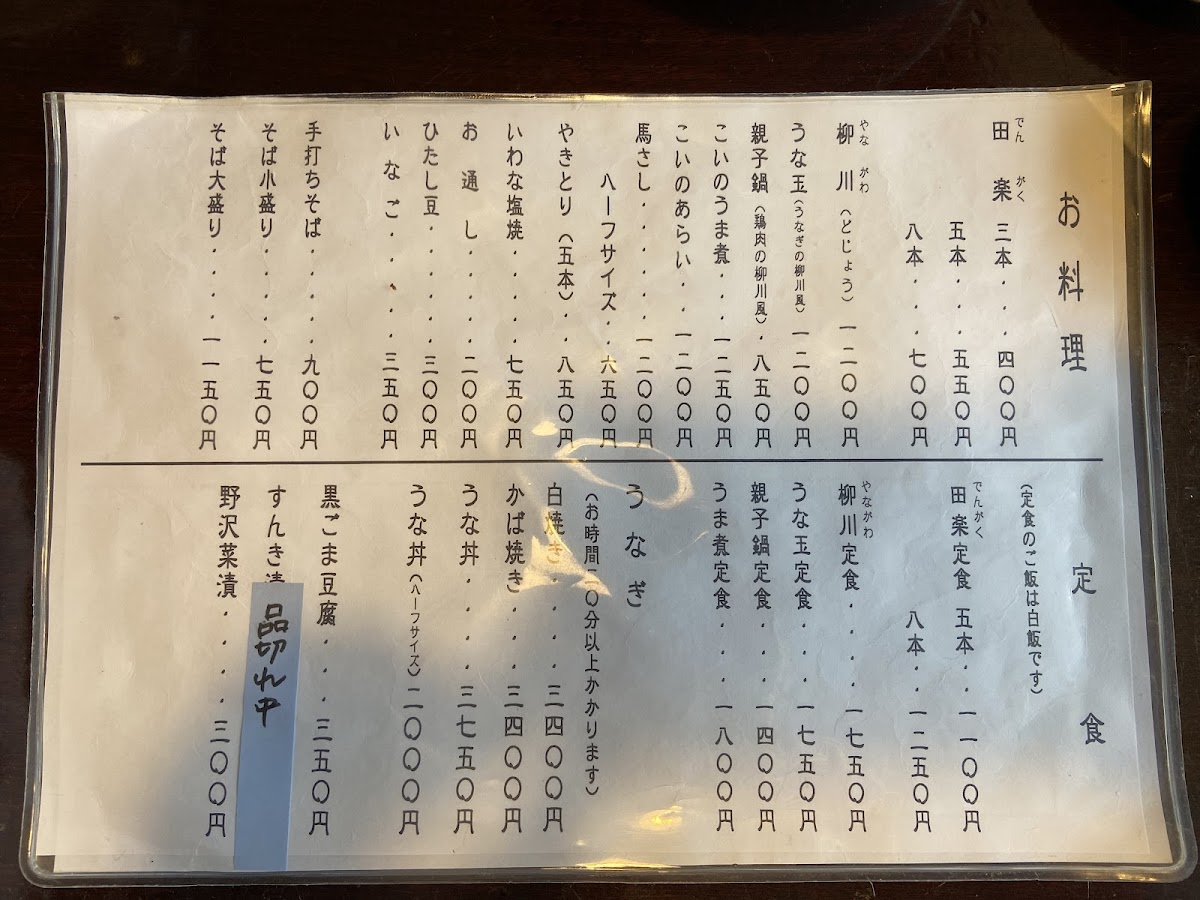 お料理
でん がく
田 楽 三本・・・四〇〇円
五本・・・五五〇円
八本・・・七〇〇円
やな がわ
柳 川（どじょう）一二〇〇円
うな玉（うなぎの柳川風）一二〇〇円
親子鍋（鶏肉の柳川風）・八五〇円
こいのうま煮・・・一二五〇円
こいのあらい・・・一二〇〇円
馬さし・・・・・・一二〇〇円
ハーフサイズ・・六五〇円
やきとり（五本）・・八五〇円
いわな塩焼・・・・七五〇円
お通し・・・・・二〇〇円
ひたし豆・・・・・三〇〇円
いなご・・・・・三五〇円
手打ちそば・・・・九〇〇円
そば小盛り・・・・七五〇円
そば大盛り・・・・一一五〇円
定食
（定食のご飯は白飯です）
でんがく
田楽定食 五本・・一一〇〇円
八本・・一二五〇円
やながわ
柳川定食・・・・一七五〇円
うな玉定食・・・・一七五〇円
親子鍋定食・・・・一四〇〇円
うま煮定食・・・・一八〇〇円
うなぎ
（お時間 〇分以上かかります）
白焼き・・・・三四〇〇円
かば焼き・・・・三四〇〇円
うな丼・・・・・三七五〇円
うな丼（ハーフサイズ）二〇〇〇円
黒ごま豆腐・・・三五〇円
すんき漬
品切れ中
野沢菜漬・・・・三〇〇円